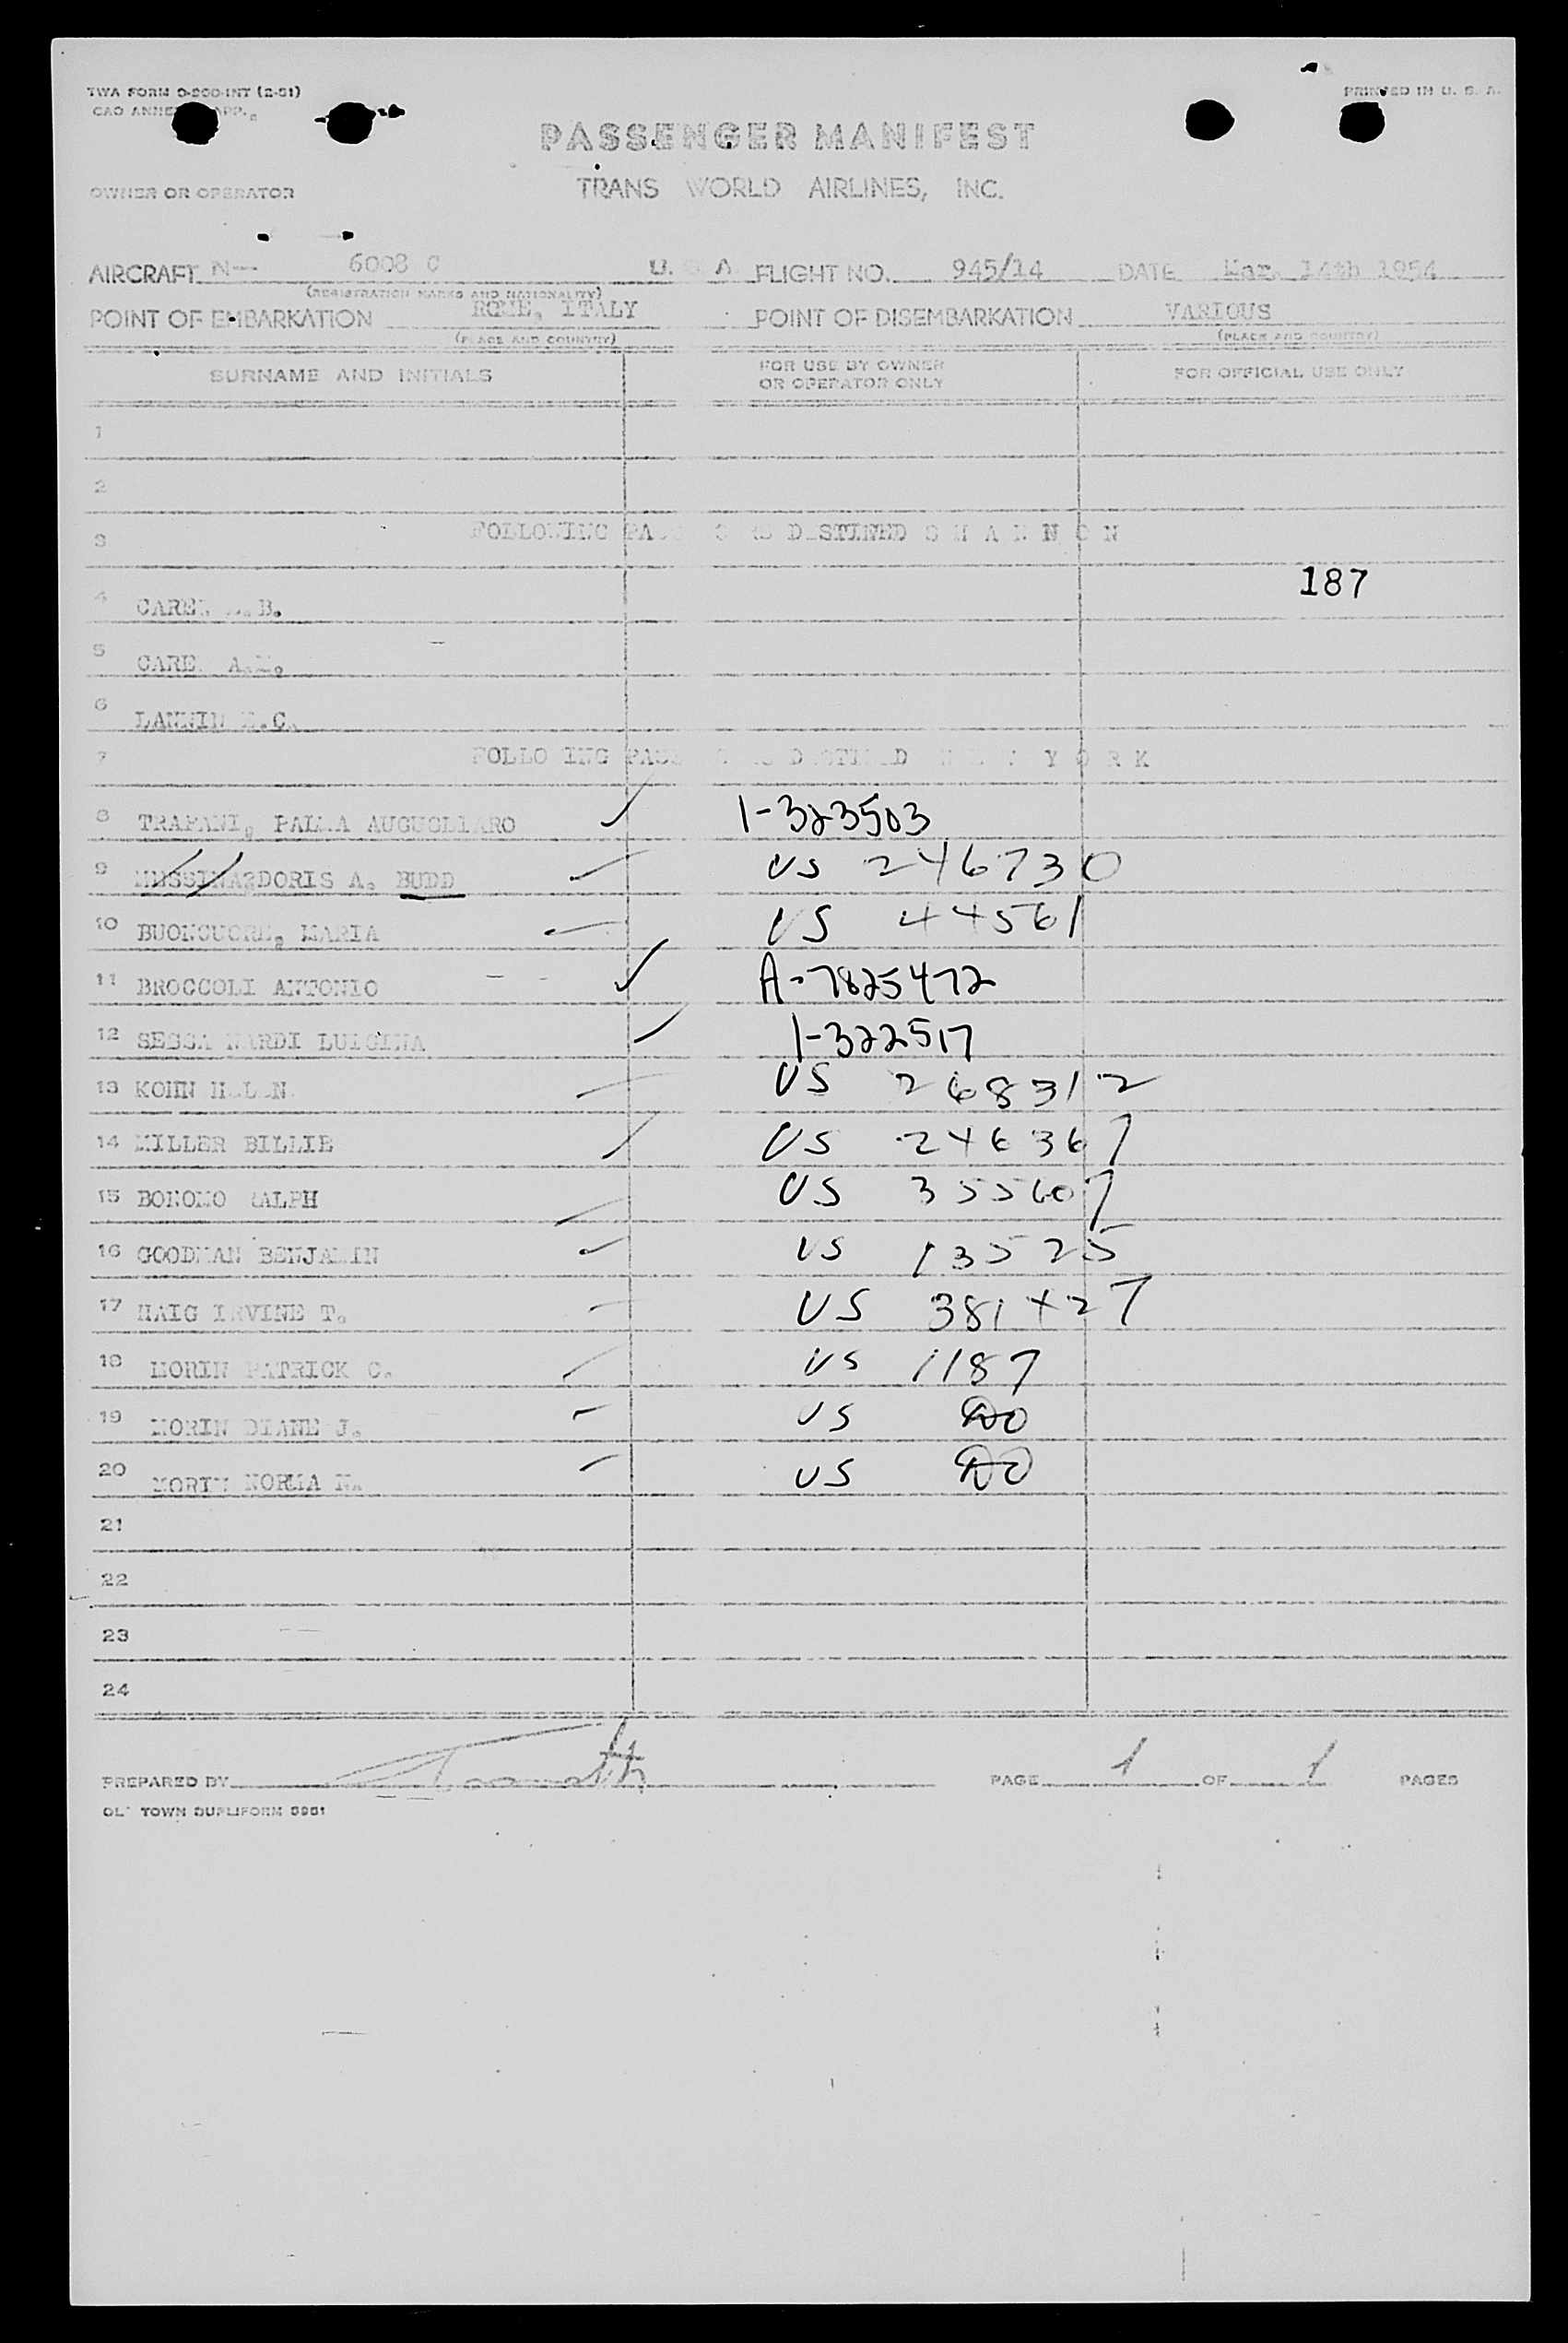 TWA FORM O-200-INT (2-51)
PRINTED IN U. S. A.
PASSENGER MANIFEST
OWNER OR OPERATOR TRANS WORLD AIRLINES, INC.
AIRCRAFT N-- 6008 C U. A FLIGHT NO. 945/14 DATE Mar. 14th 1954
(REGISTRATION MARKS AND NATIONALITY)
POINT OF EMBARKATION ROME, ITALY POINT OF DISEMBARKATION VARIOUS
(PLACE AND COUNTRY) (PLACE AND COUNTRY)
SURNAME AND INITIALS FOR USE BY OWNER OR OPERATOR ONLY FOR OFFICIAL USE ONLY
1
2
3 FOLLOWING DESTINED S H A N N O N
187
4 B.
5
6
7 FOLLOWING Y O R K
8 TRAPANI, PALMA AUGUGLIARO 1-323503
9 DORIS A. BUDD US 246730
10 BUONCUORE, MARIA US 44561
11 BROCCOLI ANTONIO A-7825472
12 SESSA NARDI LUIGINA 1-322517
13 KOHN US 268312
14 MILLER BILLIE US 246367
15 BONOMO RALPH US 355607
16 GOODMAN BENJAMIN US 13525
17 HAIG IRVINE T. US 381427
18 MORIN PATRICK C. US 1187
19 MORIN DIANE J. US DO
20 MORIN NORMA US DO
21
22
23
24
PREPARED BY PAGE 1 OF 1 PAGES
TOWN DUPLIFORM 5951